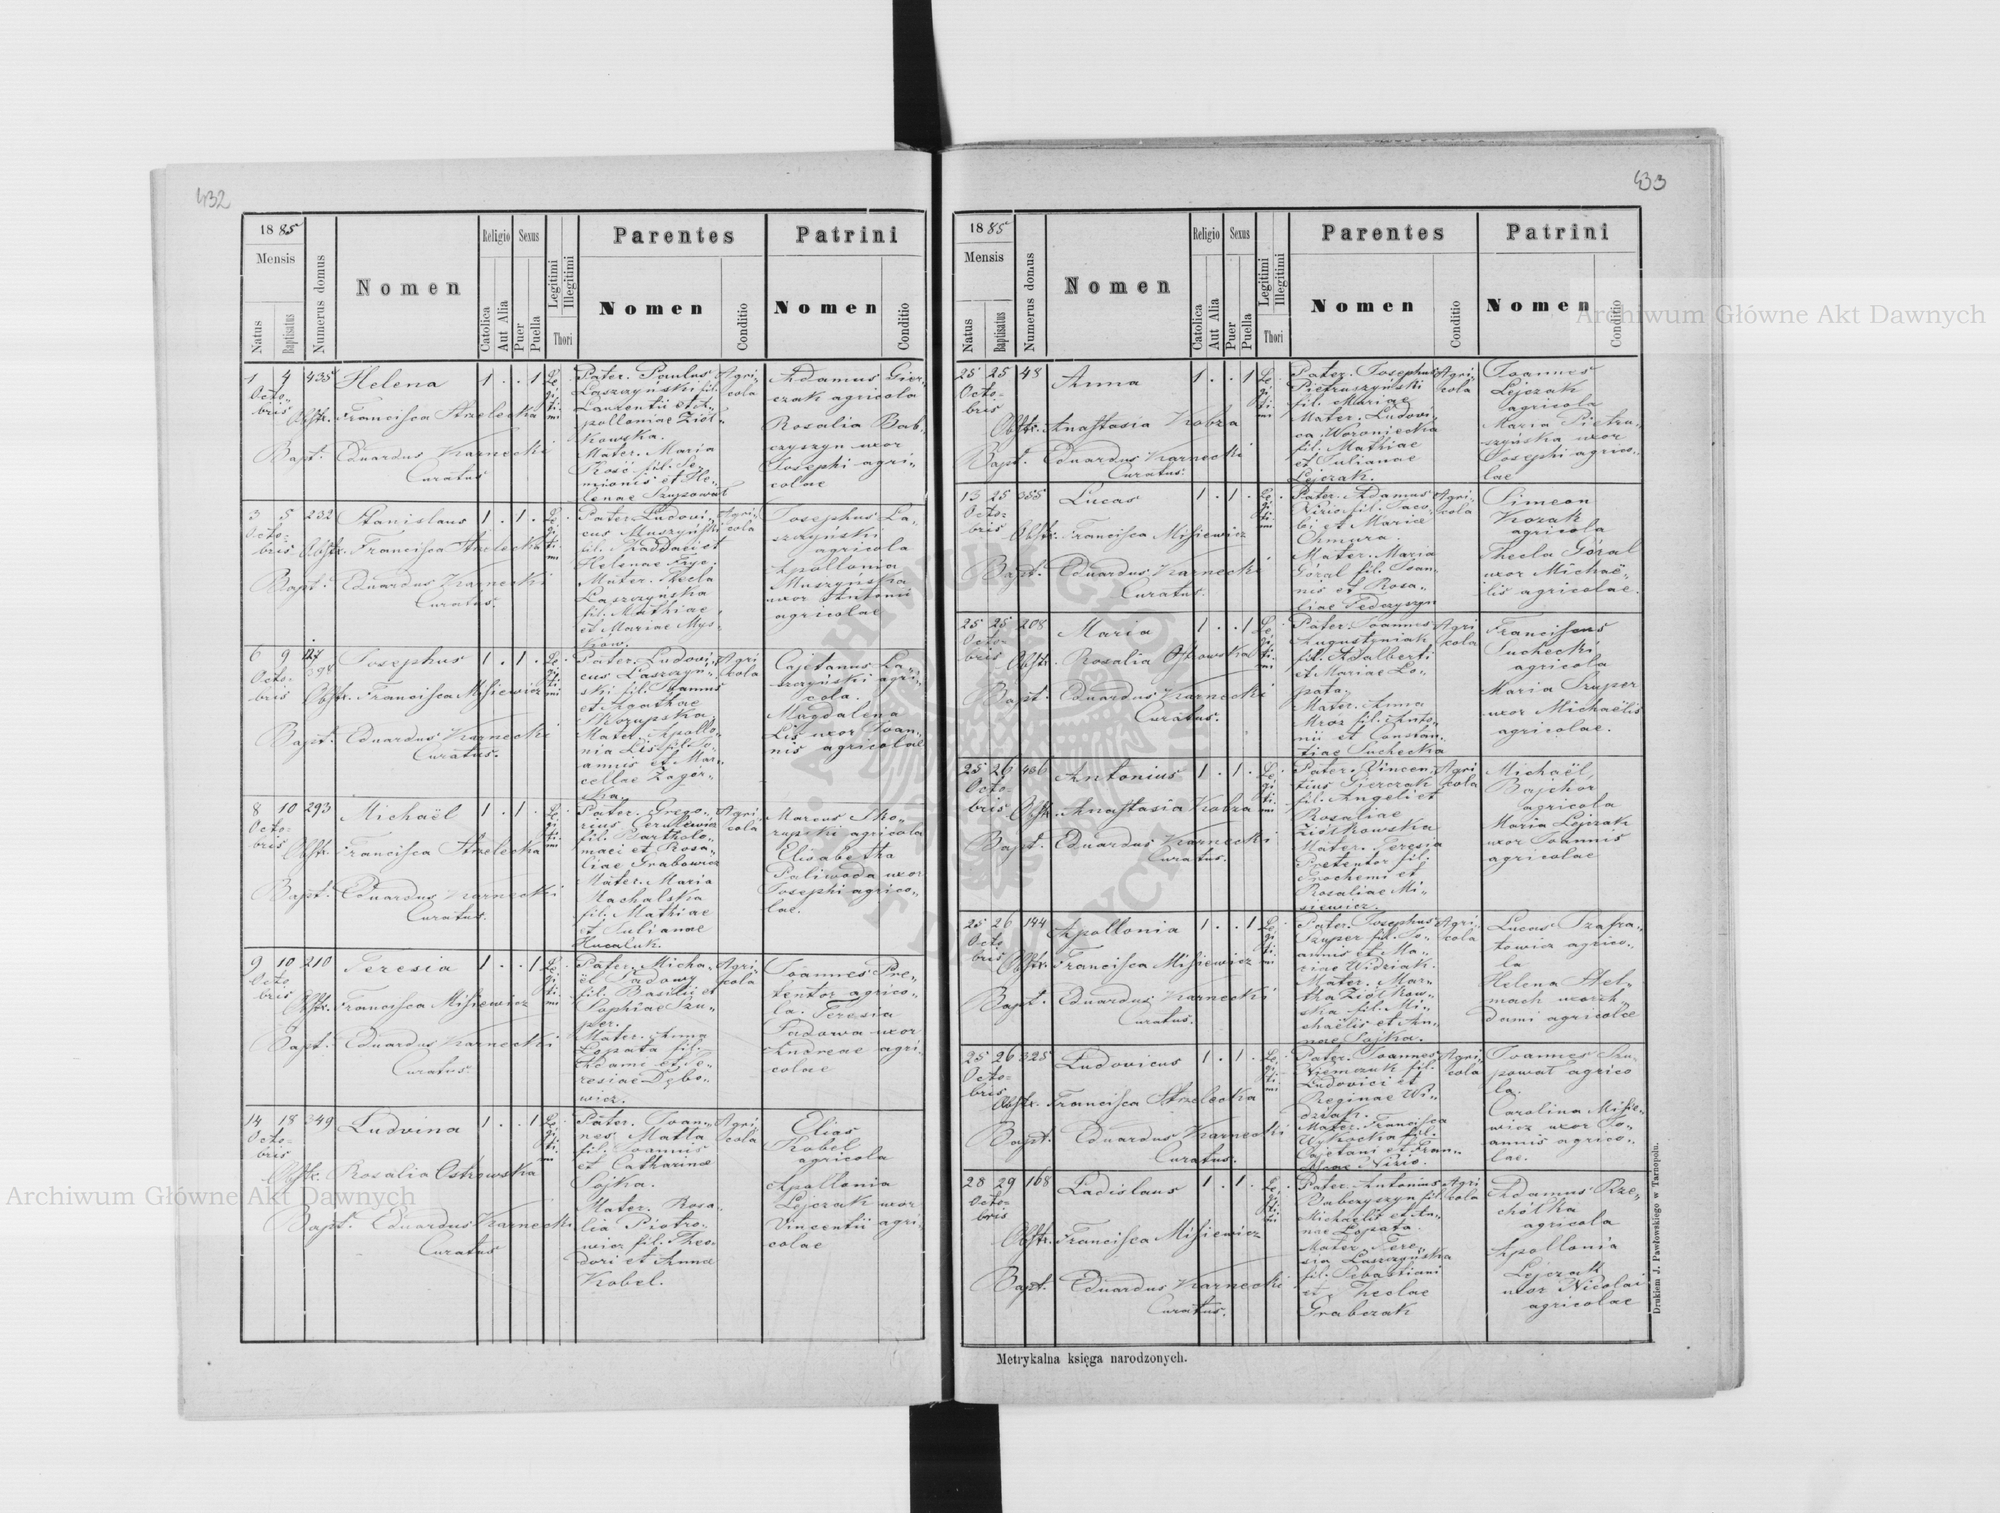 432
1885
Mensis
Natus
Baptisatus
Numerus domus
Nomen
Religio
Catolica
Aut Alia
Sexus
Puer
Puella
Legitimi
Illegitimi
Thori
Parentes
Nomen
Conditio
Patrini
Nomen
Conditio
1 4 435 Helena 1 . . 1
Octo-
bris
Obstr. Francisca Strzelecka
Bapt. Eduardus Karnecki
Curatus
Le-
gi-
ti-
mi
Pater. Paulus
Laszczyński fil.
Laurentii et A-
polloniae Ziół-
kowska.
Mater. Maria
fil. Se-
mionis et He-
lenae Szupowal
Agri-
cola
Adamus Gier-
czak agricola
Rosalia Bab-
czyszyn uxor
Josephi agri-
colae
3 5 232 Stanislaus 1 . 1 .
Octo-
bris
Obstr. Francisca Strzelecka
Bapt. Eduardus Karnecki
Curatus.
Le-
gi-
ti-
mi
Pater Ludovi-
cus Muszyński
fil. Thaddaei et
Helenae
Mater. Thecla
Laszczyńska
fil. Mathiae
et Mariae Mys-
ków.
Agri-
cola
Josephus La-
szczyński
agricola
Apollonia
Muszyńska
uxor Antonii
agricolae
6 9 Josephus 1 . 1 .
Octo-
bris
Obstr. Francisca Misiewicz
Bapt. Eduardus Karnecki
Curatus.
Le-
gi-
ti-
mi
Pater. Ludovi-
cus Laszczyń-
ski fil. Joannis
et Agathae
Skorupska.
Mater. Apollo-
nia Lis fil. Jo-
annis et Mar-
cellae Zagór-
ska.
Agri
cola
Cajetanus La-
szczyński agri-
cola.
Magdalena
Lis uxor Joan-
nis agricolae
8 10 293 Michaël 1 . 1 .
Octo-
bris
Obstr. Francisca Strzelecka
Bapt. Eduardus Karnecki
Curatus.
Le-
gi-
ti-
mi
Pater. Grego-
rius
fil. Bartholo-
maei et Rosa-
liae Grabowicz
Mater. Maria
Machalska
fil. Mathiae
et Julianae
Hucaluk.
Agri-
cola
Marcus Sko-
rupski agricola
Elisabetha
Paliwoda uxor
Josephi agrico-
lae.
9 10 210 Teresia 1 . . 1
Octo
bris
Obstr. Francisca Misiewicz
Bapt. Eduardus Karnecki
Curatus.
Le-
gi-
ti-
mi
Pater. Micha-
ël Sadowy
fil. Basilii et
Sophiae Szu-
per.
Mater. Anna
Łopata fil.
Adami et Te-
resiae Dębo-
wicz.
Agri-
cola
Joannes Pre-
tentor agrico-
la. Teresia
Sadowa uxor
Andreae agri-
colae
14 18 349 Ludvina 1 . . 1
Octo-
bris
Obstr. Rosalia Ostrowska
Bapt. Eduardus Karnecki
Curatus
Le-
gi-
ti-
mi
Pater. Joan-
nes Matla
fil. Joannis
et Catharinae
Sojka.
Mater. Rosa-
lia Piotro-
wicz fil. Theo-
dori et Annae
Kobel.
Agri
cola
Elias
Kobel
agricola
Apollonia
Lejczak uxor
Vincentii agri-
colae
433
1885
Mensis
Natus
Baptisatus
Numerus domus
Nomen
Religio
Catolica
Aut Alia
Sexus
Puer
Puella
Legitimi
Illegitimi
Thori
Parentes
Nomen
Conditio
Patrini
Nomen
Conditio
25 25 48 Anna 1 . . 1
Octo-
bris
Obstr. Anastasia Kobza
Bapt. Eduardus Karnecki
Curatus.
Le-
gi-
ti-
mi
Pater. Josephus
Pietruszyński
fil. Mariae
Mater. Ludovi-
ca Woroniecka
fil. Mathiae
et Julianae
Lejczak.
Agri-
cola
Joannes
Lejczak
agricola
Maria Pietru-
szyńska uxor
Josephi agrico-
lae
13 25 355 Lucas 1 . 1 .
Octo-
bris
Obstr. Francisca Misiewicz
Bapt. Eduardus Karnecki
Curatus.
Le-
gi-
ti-
mi
Pater. Adamus
Nizio fil. Jaco-
bi et Mariae
Chmura.
Mater. Maria
Góral fil. Joan-
nis et Rosa-
liae Fedczyszyn
Agri-
cola
Simeon
Kozak
agricola
Thecla Góral
uxor Michaë-
lis agricolae.
25 25 208 Maria 1 . . 1
Octo-
bris
Obstr. Rosalia Ostrowska
Bapt. Eduardus Karnecki
Curatus.
Le-
gi-
ti-
mi
Pater. Joannes
Augustyniak
fil. Adalberti
et Mariae Ło-
pata.
Mater. Anna
Mroz fil. Anto-
nii et Constan-
tiae Suchecka
Agri
cola
Franciscus
Suchecki
agricola
Maria Szuper
uxor Michaëlis
agricolae.
25 26 436 Antonius 1 . 1 .
Octo-
bris
Obstr. Anastasia Kobza
Bapt. Eduardus Karnecki
Curatus.
Le-
gi-
ti-
mi
Pater. Vincen-
tius Gierczak
fil. Angeli et
Rosaliae
Ziółkowska
Mater. Teresia
Pretentor fil.
Grochemi et
Rosaliae Mi-
siewicz.
Agri
cola
Michaël
Bajchor
agricola
Maria Lejczak
uxor Joannis
agricolae
25 26 144 Apollonia 1 . . 1
Octo
bris
Obstr. Francisca Misiewicz
Bapt. Eduardus Karnecki
Curatus.
Le-
gi-
ti-
mi
Pater. Josephus
Szuper fil. Jo-
annis et Ma-
riae Widziak.
Mater. Mar-
tha Ziółkow-
ska fil. Mi-
chaëlis et An-
nae Sojka.
Agri-
cola
Lucas Szafra-
towicz agrico-
la
Helena Hel-
mach uxor A-
dami agricolae
25 26 325 Ludovicus 1 . 1 .
Octo-
bris
Obstr. Francisca Strzelecka
Bapt. Eduardus Karnecki
Curatus.
Le-
gi-
ti-
mi
Pater. Joannes
Niemczuk fil.
Ludovici et
Reginae Wi-
dziak.
Mater. Francisca
Wysocka fil.
Cajetani et Fran-
ciscae Nizio.
Agri-
cola
Joannes Szu-
powat agrico
la.
Carolina Misie-
wicz uxor Jo-
annis agrico-
lae.
28 29 168 Ladislaus 1 . 1 .
Octo-
bris
Obstr. Francisca Misiewicz
Bapt. Eduardus Karnecki
Curatus.
Le-
gi-
ti-
mi
Pater. Antonius
Babczyszyn fil.
Michaelis et An-
nae Łopata.
Mater. Tere-
sia Laszczyńska
fil. Sebastiani
et Theclae
Grabczak
Agri
cola
Adamus Rze-
chótka
agricola
Apollonia
Lejczak
uxor Nicolai
agricolae
Metrykalna księga narodzonych.
Drukiem J. Pawłowskiego w Tarnopolu.
Archiwum Główne Akt Dawnych
Archiwum Główne Akt Dawnych